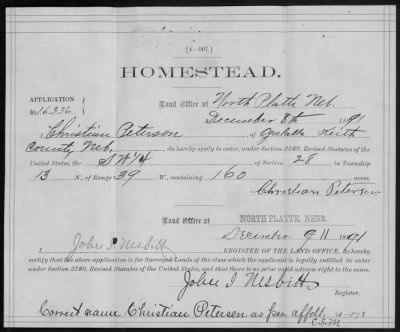 [4—007.]
HOMESTEAD.
APPLICATION
No. 16336
Land Office at North Platte Neb.
December 8th 1891
I, Christian Peterson, of Ogalalla Keith
County Neb., do hereby apply to enter, under Section 2289, Revised Statutes of the
United States, the SW ¼ of Section 28 in Township
13 N., of Range 39 W, containing 160 acres.
Christian Petersen
Land Office at NORTH PLATTE, NEBR.
December 9 1891
I, John I. Nesbitt, REGISTER OF THE LAND OFFICE, do hereby
certify that the above application is for Surveyed Lands of the class which the applicant is legally entitled to enter
under Section 2289, Revised Statutes of the United States, and that there is no prior valid adverse right to the same.
John I Nesbitt
Register.
Correct name Christian Petersen as per affdt